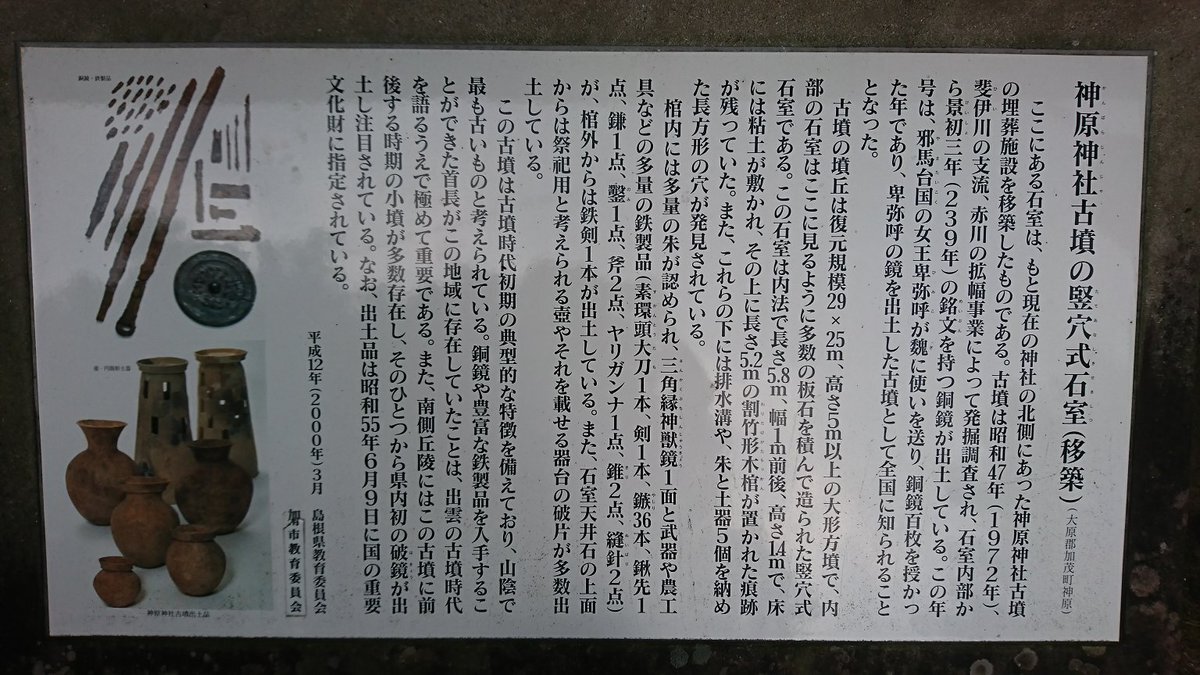 神原神社古墳の竪穴式石室(移築)(大原郡加茂町神原)
ここにある石室は、もと現在の神社の北側にあった神原神社古墳
の埋葬施設を移築したものである。古墳は昭和47年(1972年)、
斐伊川の支流、赤川の拡幅事業によって発掘調査され、石室内部か
ら景初三年(239年)の銘文を持つ銅鏡が出土している。この年
号は、邪馬台国の女王卑弥呼が魏に使いを送り、銅鏡百枚を授かっ
た年であり、卑弥呼の鏡を出土した古墳として全国に知られること
となった。
古墳の墳丘は復元規模29×25m、高さ5m以上の大形方墳で、内
部の石室はここに見るように多数の板石を積んで造られた竪穴式
石室である。この石室は内法で長さ5.8m、幅1m前後、高さ1.4mで、床
には粘土が敷かれ、その上に長さ5.2mの割竹形木棺が置かれた痕跡
が残っていた。また、これらの下には排水溝や、朱と土器5個を納め
た長方形の穴が発見されている。
棺内には多量の朱が認められ、三角縁神獣鏡1面と武器や農工
具などの多量の鉄製品(素環頭大刀1本、剣1本、鏃36本、鍬先1
点、鎌1点、鑿1点、斧2点、ヤリガンナ1点、錐2点、縫針2点)
が、棺外からは鉄剣1本が出土している。また、石室天井石の上面
からは祭祀用と考えられる壺やそれを載せる器台の破片が多数出
土している。
この古墳は古墳時代初期の典型的な特徴を備えており、山陰で
最も古いものと考えられている。銅鏡や豊富な鉄製品を入手するこ
とができた首長がこの地域に存在していたことは、出雲の古墳時代
を語るうえで極めて重要である。また、南側丘陵にはこの古墳に前
後する時期の小墳が多数存在し、そのひとつから県内初の破鏡が出
土し注目されている。なお、出土品は昭和55年6月9日に国の重要
文化財に指定されている。
平成12年(2000年)3月
島根県教育委員会
市教育委員会
銅鏡・鉄製品
壺・円筒形土器
神原神社古墳出土品